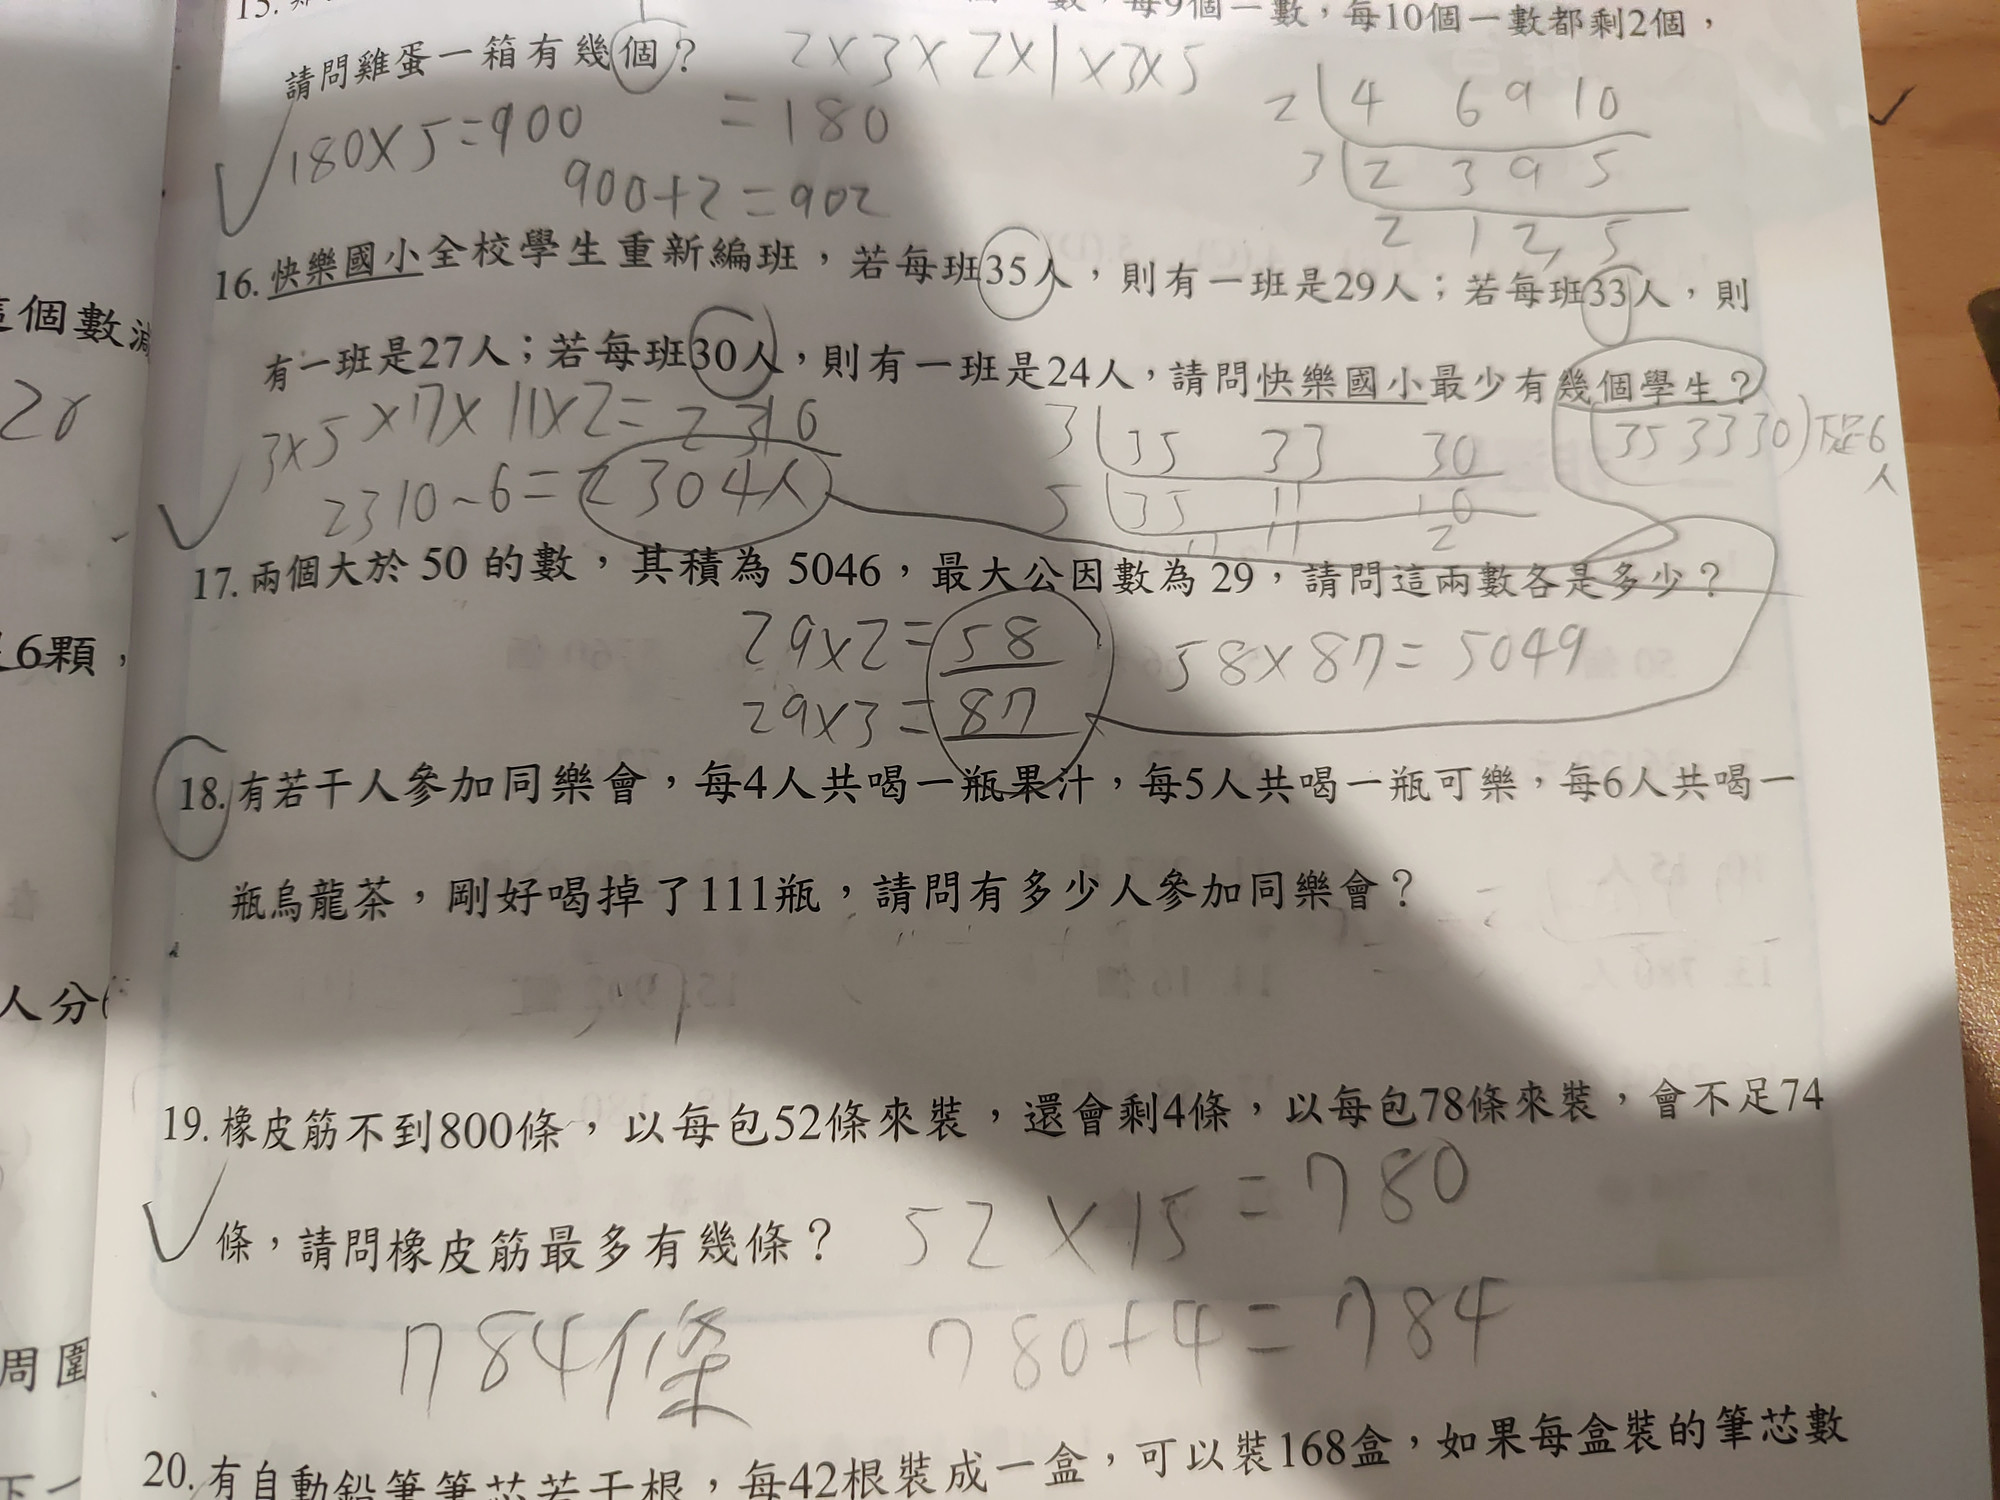 15.
數，每9個一數，每10個一數都剩2個，
請問雞蛋一箱有幾個？
2×3×2×1×3×5
=180
180×5=900
900+2=902
2 4 6 9 10
3 2 3 9 5
2 1 2, 5
16. 快樂國小全校學生重新編班，若每班35人，則有一班是29人；若每班33人，則
有一班是27人；若每班30人，則有一班是24人，請問快樂國小最少有幾個學生？
3×5×7×11×2=2310
2310-6=2304人
3 35 33 30
5 35 11 10
11 2
35 33 30 不足6人
17. 兩個大於 50 的數，其積為 5046，最大公因數為 29，請問這兩數各是多少？
29×2=58
29×3=87
58×87=5049
18. 有若干人參加同樂會，每4人共喝一瓶果汁，每5人共喝一瓶可樂，每6人共喝一
瓶烏龍茶，剛好喝掉了111瓶，請問有多少人參加同樂會？
19. 橡皮筋不到800條，以每包52條來裝，還會剩4條，以每包78條來裝，會不足74
條，請問橡皮筋最多有幾條？
52×15=780
780+4=784
784條
20. 有自動鉛筆筆芯若干根，每42根裝成一盒，可以裝168盒，如果每盒裝的筆芯數
這個數減
6顆，
人分
周圍